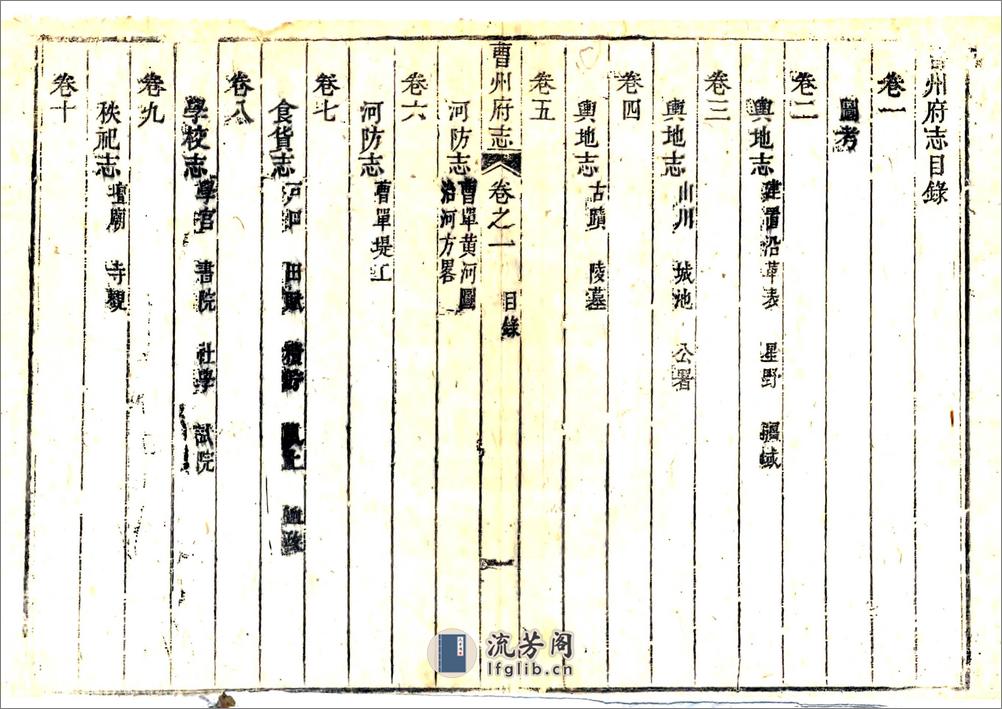 曹州府志目錄
卷一
圖考
卷二
輿地志 建置沿革表 星野 疆域
卷三
輿地志 山川 城池 公署
卷四
輿地志 古蹟 陵墓
卷五
曹州府志 卷之一 目錄 一
河防志 曹單黃河圖
治河方畧
卷六
河防志 曹單堤工
卷七
食貨志 戶口 田賦 風土
卷八
學校志 學宮 書院 社學 試院
卷九
秩祀志 壇廟 寺觀
卷十
流芳阁
lfglib.cn